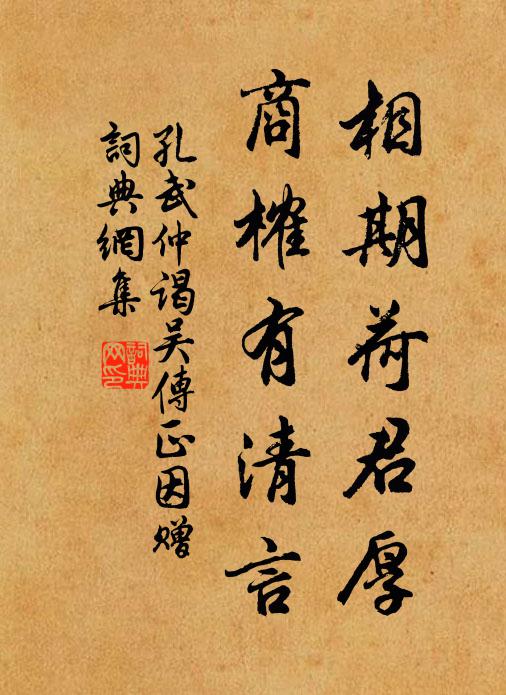 相期荷君厚
商榷有清言
孔武仲謁吴傳正因贈
詞典網集
詞典
网印